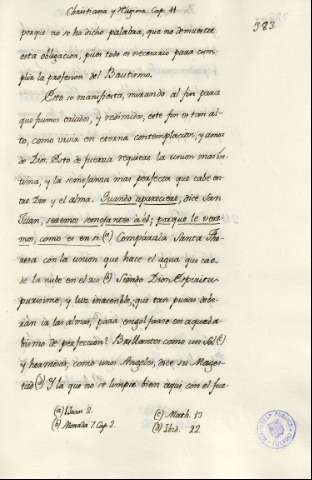 Christiana y Mistica Cap. 11
383
porque no se ha dicho palabra, que no demuestre
esta obligacion, pues todo es necesario para cum-
plir la profesion del Bautismo.
Esto se manifiesta, mirando al fin para
que fuimos criados, y redimidos, este fin es tan al-
to, como vivir en eterna contemplacion, y amor
de Dios. Esto de fuerza requiere la union mas in-
tima, y la semejanza mas perfecta que cabe en-
tre Dios y el alma. Quando apareciere, dice San
Juan, seremos semejantes à él; porque le vere-
mos, como es en si (a) Comparala Santa The-
resa con la union que hace el agua que cae
de la nube en el rio (b) Siendo Dios Espiritu
purisimo, y luz inacesible, que tan puras debe-
ran ir las almas, para engolfarse en aquel a-
bismo de perfeccion? Brillantes como un Sol (c)
y hermosas, como unos Angeles, dice su Mages-
tad (d) Y la que no se limpie bien aqui con el fue-
(a) 1 Juan 3.
(b) Morada 7 Cap. 2.
(c) Math. 13
(d) Ibid. 22